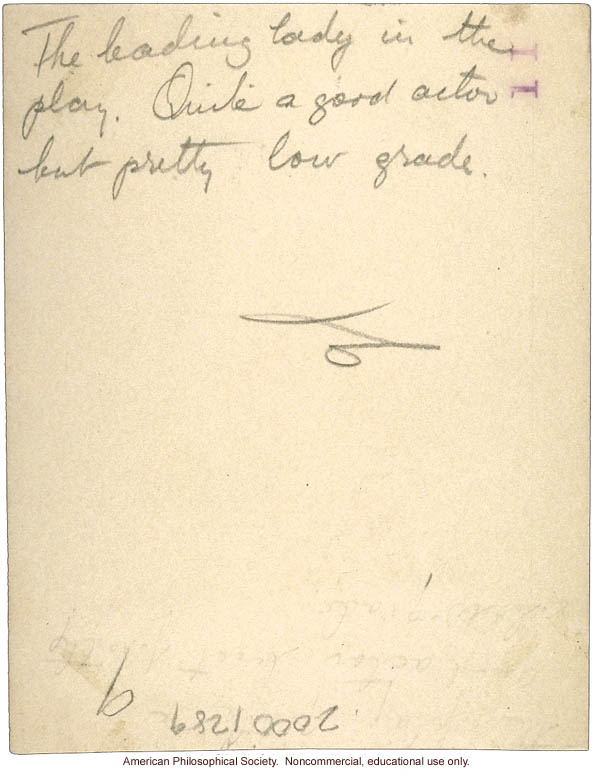 The leading lady in the
play. Quite a good actor
but pretty low grade.
11
20001289
American Philosophical Society.  Noncommercial, educational use only.